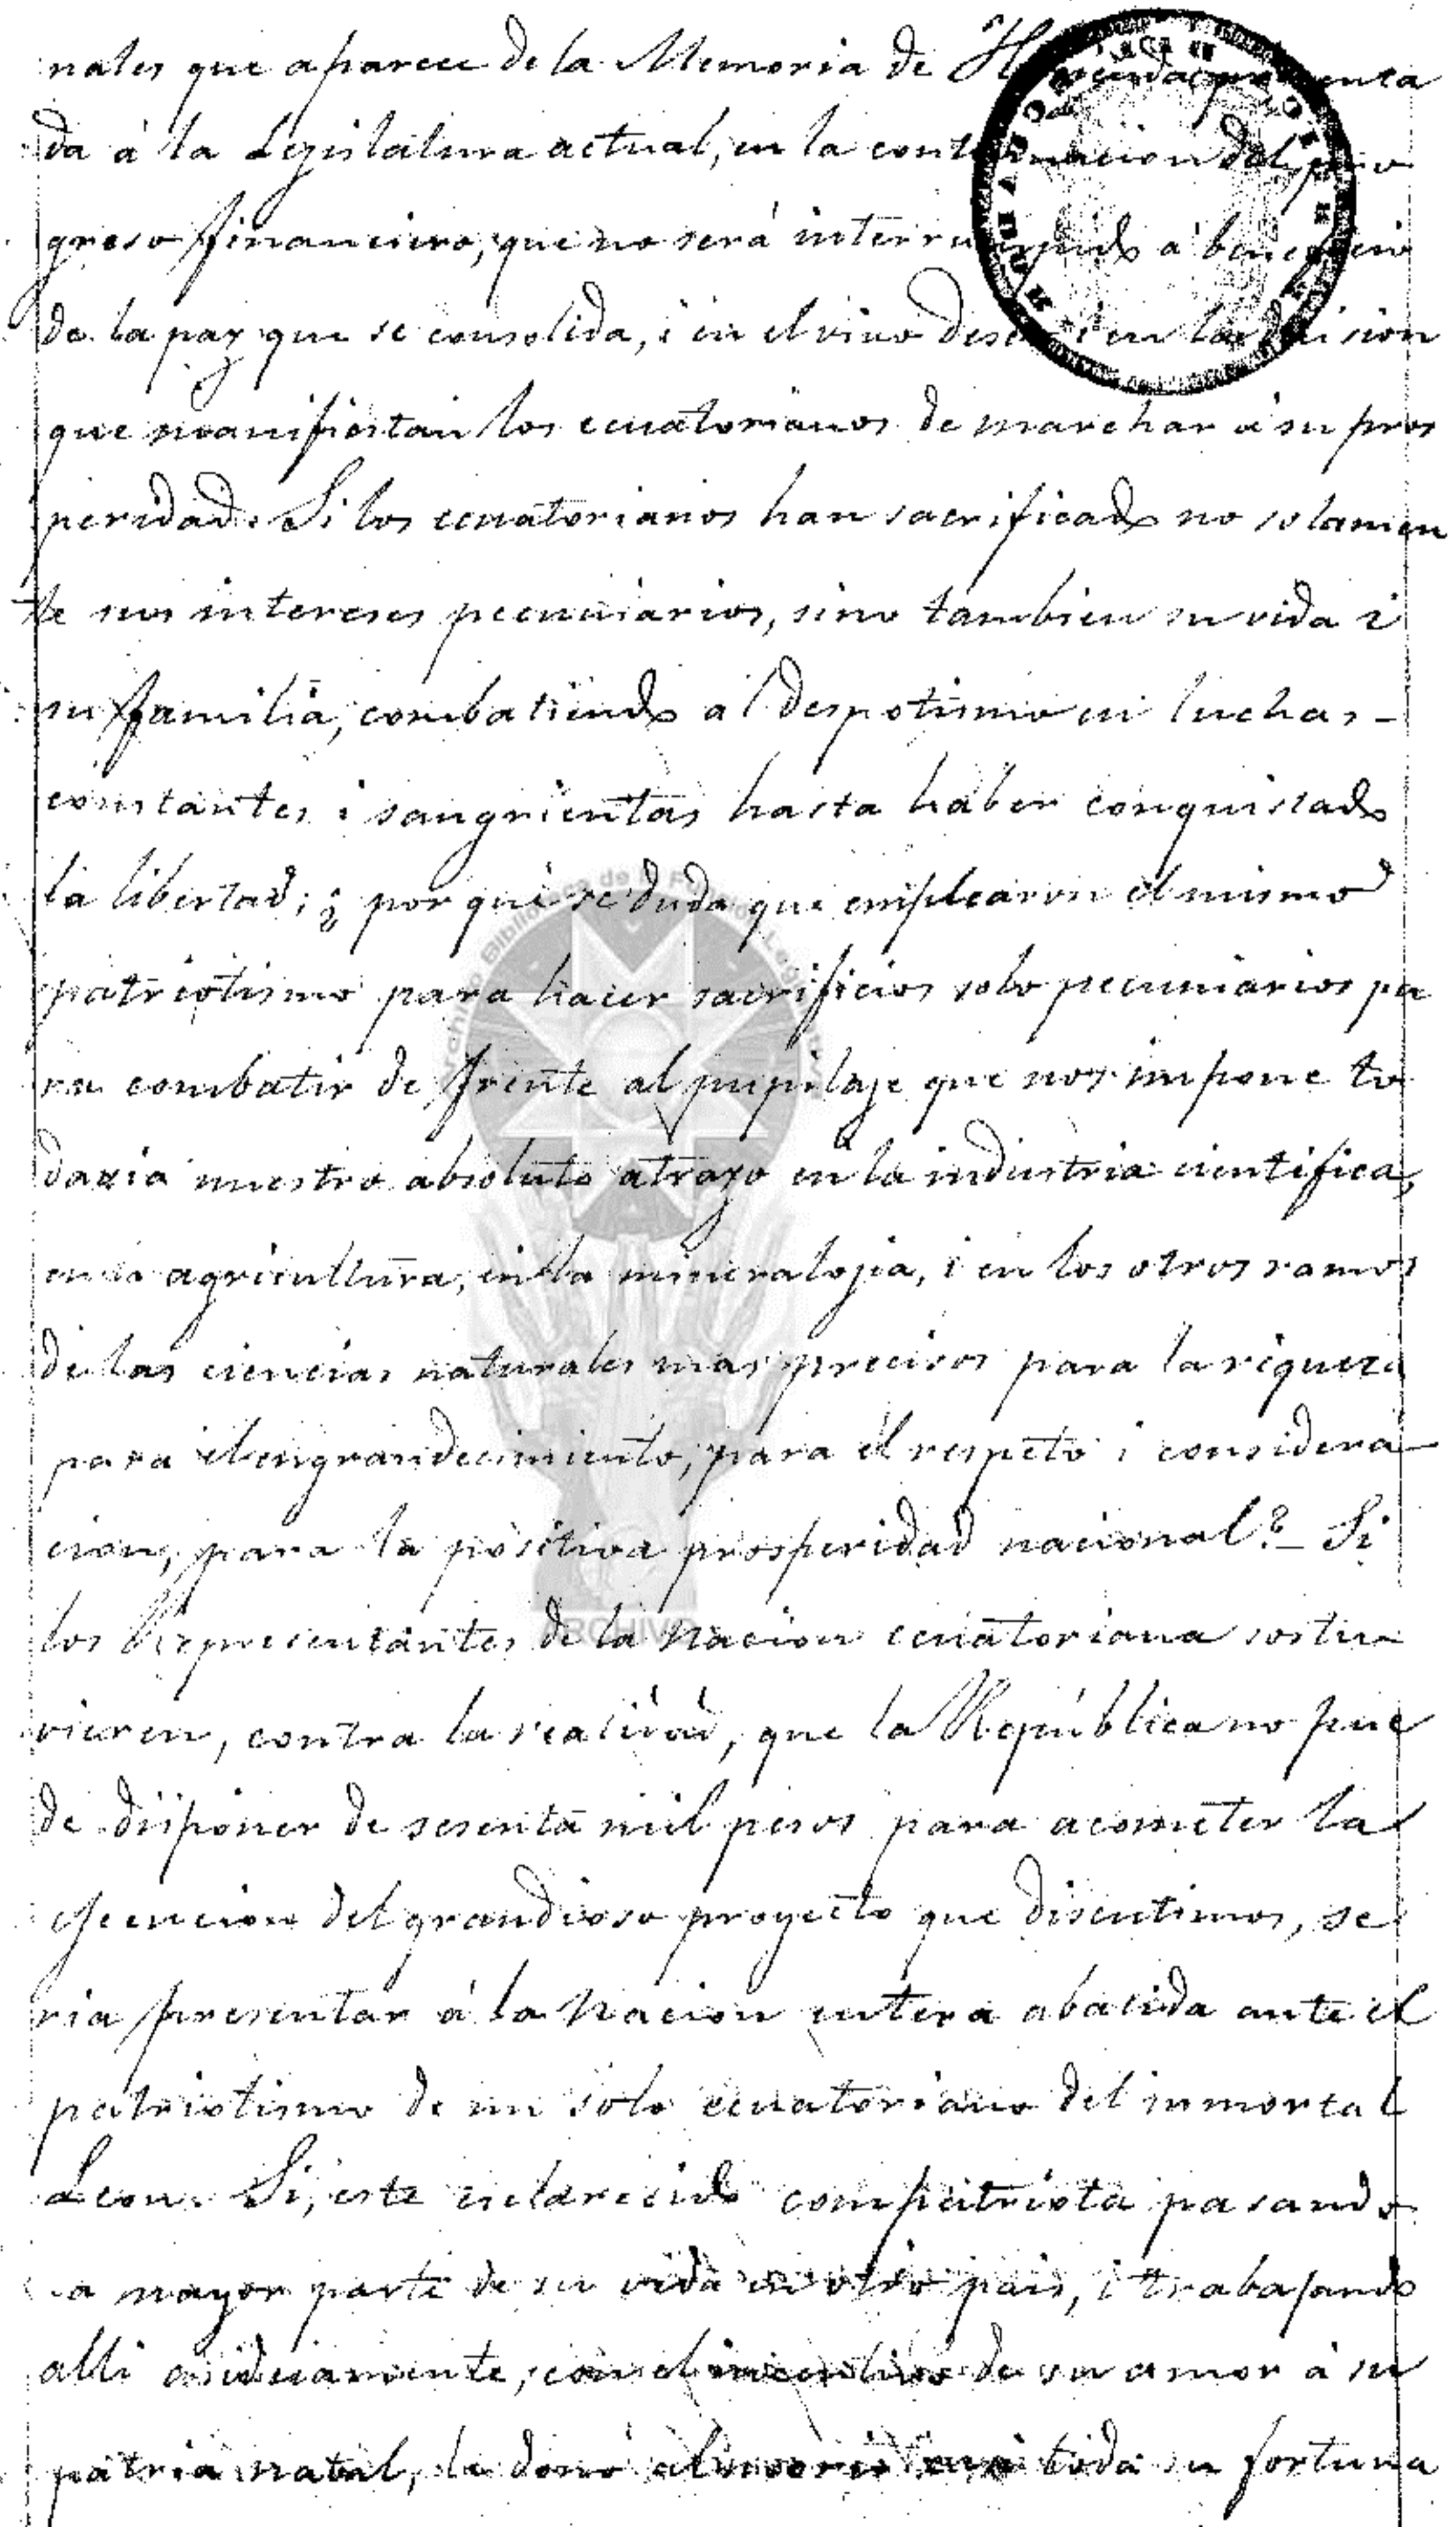 nales que aparece de la Memoria de Hacienda presenta
da á la Legislatura actual, en la continuacion del pro
greso financiero, que no será interrumpido á beneficio
de la paz que se consolida, i en el vivo deseo i en la decision
que manifiestan los ecuatorianos de marchar á su pros
peridad. Si los ecuatorianos han sacrificado no solamen
te sus intereses pecuniarios, sino tambien su vida i
su familia, combatiendo al despotismo en luchas -
constantes i sangrientas hasta haber conquistado
la libertad; ¿ por qué se duda que emplearon el mismo
patriotismo para hacer sacrificios solo pecuniarios pa
ra combatir de frente al pupilaje que nos impone to
davia nuestro absoluto atrazo en la industria cientifica,
en la agricultura, en la mineralojia, i en los otros ramos
de las ciencias naturales mas precisos para la riqueza
para el engrandecimiento, para el respeto i considera
cion, para la positiva prosperidad nacional? _ Si
los Representantes de la Nacion ecuatoriana sostu
vieren, contra la realidad, que la República no pue
de disponer de sesenta mil pesos para acometer la
ejecucion del grandioso proyecto que discutimos, se
ria presentar á la Nacion entera abatida ante el
patriotismo de un solo ecuatoriano del inmortal
Leon. Si, este esclarecido compatriota pasando
la mayor parte de su vida en otro pais, i trabajando
alli asiduamente, con el incentivo de su amor á su
patria natal, le donó al morir casi toda su fortuna
ARCHIVO